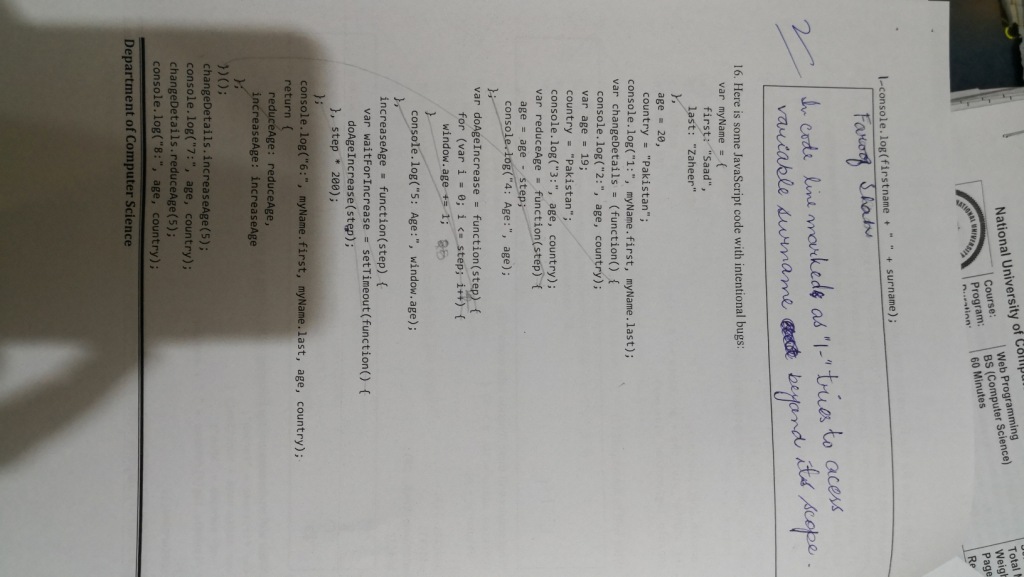 National University of
Course: Web Programming
Program: BS (Computer Science)
60 Minutes
Total
Page
1-console.log(firstname + " " + surname);
Farooq
2
In code line marked as "1-" tries to acess
variable surname beyand its scope.
16. Here is some JavaScript code with intentional bugs:
var myName = {
first: "Saad",
last: "Zaheer"
},
age = 20,
country = "Pakistan";
console.log("1:", myName.first, myName.last);
var changeDetails = (function() {
console.log("2:", age, country);
var age = 19;
country = "Pakistan";
console.log("3:", age, country);
var reduceAge = function(step) {
age = age - step;
console.log("4: Age:", age);
};
var doAgeIncrease = function(step) {
for (var i = 0; i <= step; i++) {
window.age += 1;
}
console.log("5: Age:", window.age);
},
increaseAge = function(step) {
var waitForIncrease = setTimeout(function() {
doAgeIncrease(step);
}, step * 200);
};
console.log("6:", myName.first, myName.last, age, country);
return {
reduceAge: reduceAge,
increaseAge: increaseAge
};
})();
changeDetails.increaseAge(5);
console.log("7:", age, country);
changeDetails.reduceAge(5);
console.log("8:", age, country);
Department of Computer Science